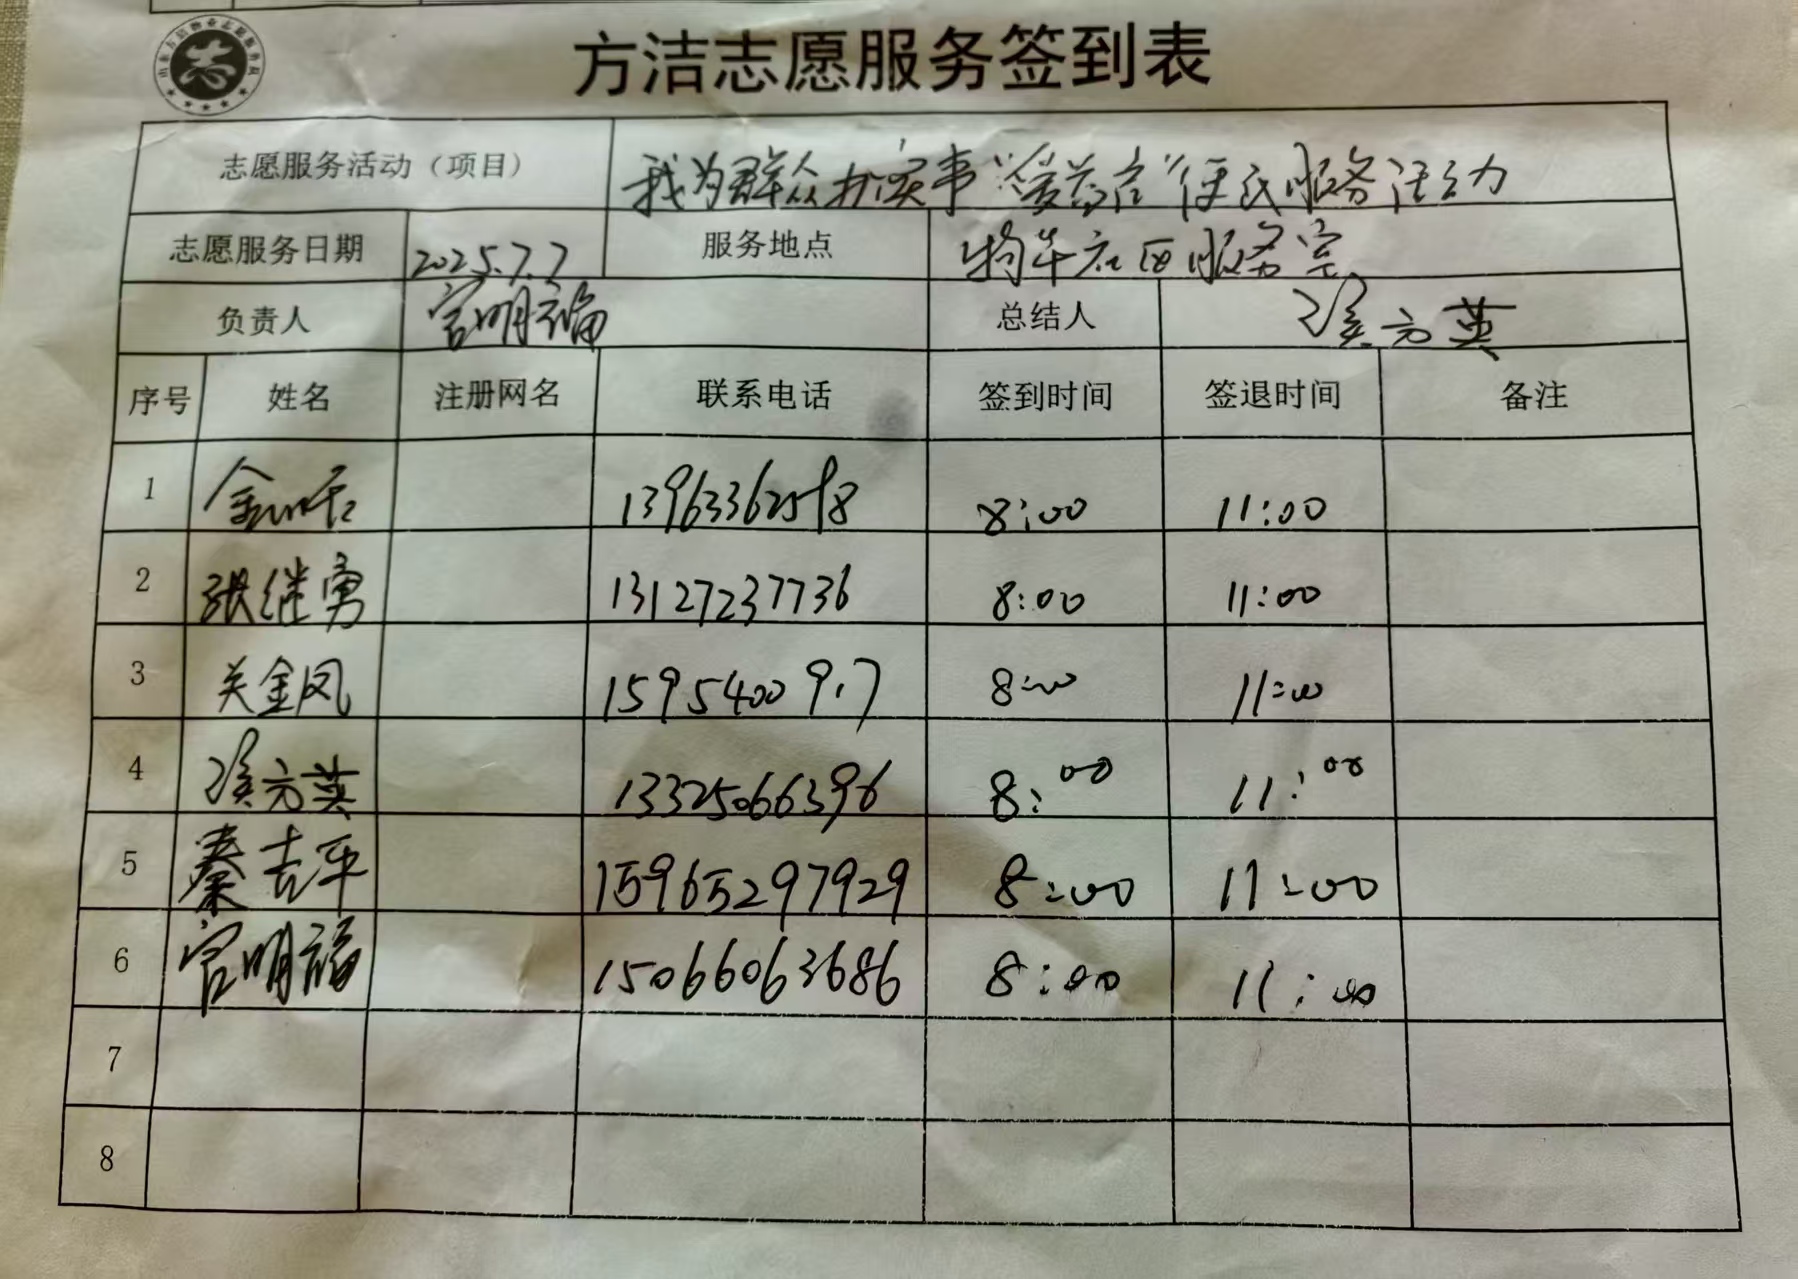 方洁志愿服务签到表
志愿服务活动（项目） 我为群众办实事“爱益客”便民服务活动
志愿服务日期 2025.7.7 服务地点 牛社区服务室
负责人 官明福 总结人 方英
序号 姓名 注册网名 联系电话 签到时间 签退时间 备注
1 金 8:00 11:00
2 张继勇 13127237736 8:00 11:00
3 关金凤 8:00 11:00
4 方英 13325066396 8:00 11:00
5 秦吉平 15965297929 8:00 11:00
6 官明福 15066063686 8:00 11:00
7
8